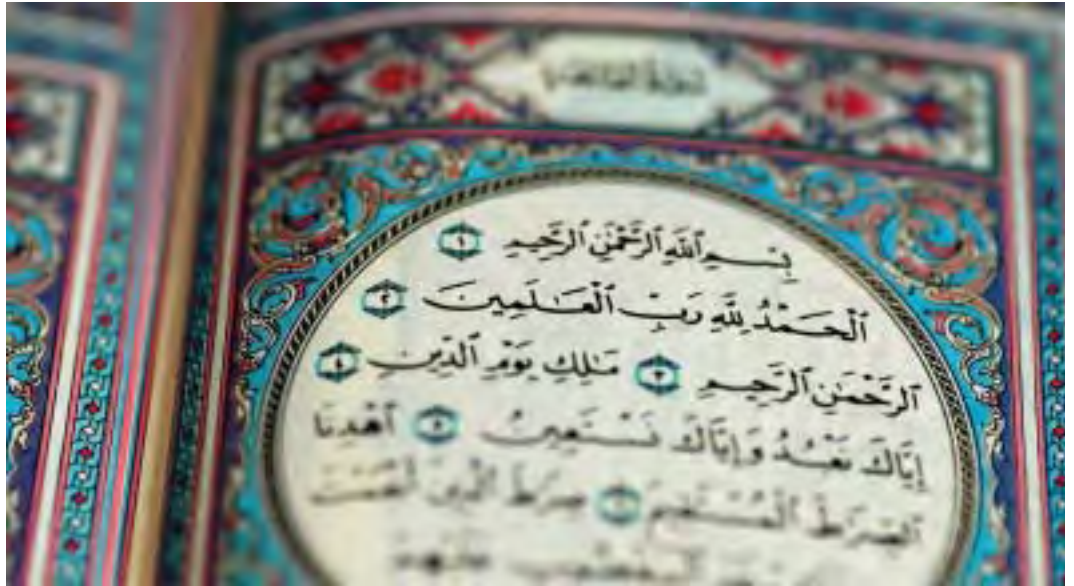 سورة الفاتحة
بِسْمِ ٱللَّهِ ٱلرَّحْمَٰنِ ٱلرَّحِيمِ ١
ٱلْحَمْدُ لِلَّهِ رَبِّ ٱلْعَٰلَمِينَ ٢
ٱلرَّحْمَٰنِ ٱلرَّحِيمِ ٣ مَٰلِكِ يَوْمِ ٱلدِّينِ ٤
إِيَّاكَ نَعْبُدُ وَإِيَّاكَ نَسْتَعِينُ ٥ ٱهْدِنَا
ٱلصِّرَٰطَ ٱلْمُسْتَقِيمَ ٦ صِرَٰطَ ٱلَّذِينَ أَنْعَمْتَ
ٱلْمَغْضُوبِ عَلَيْهِمْ